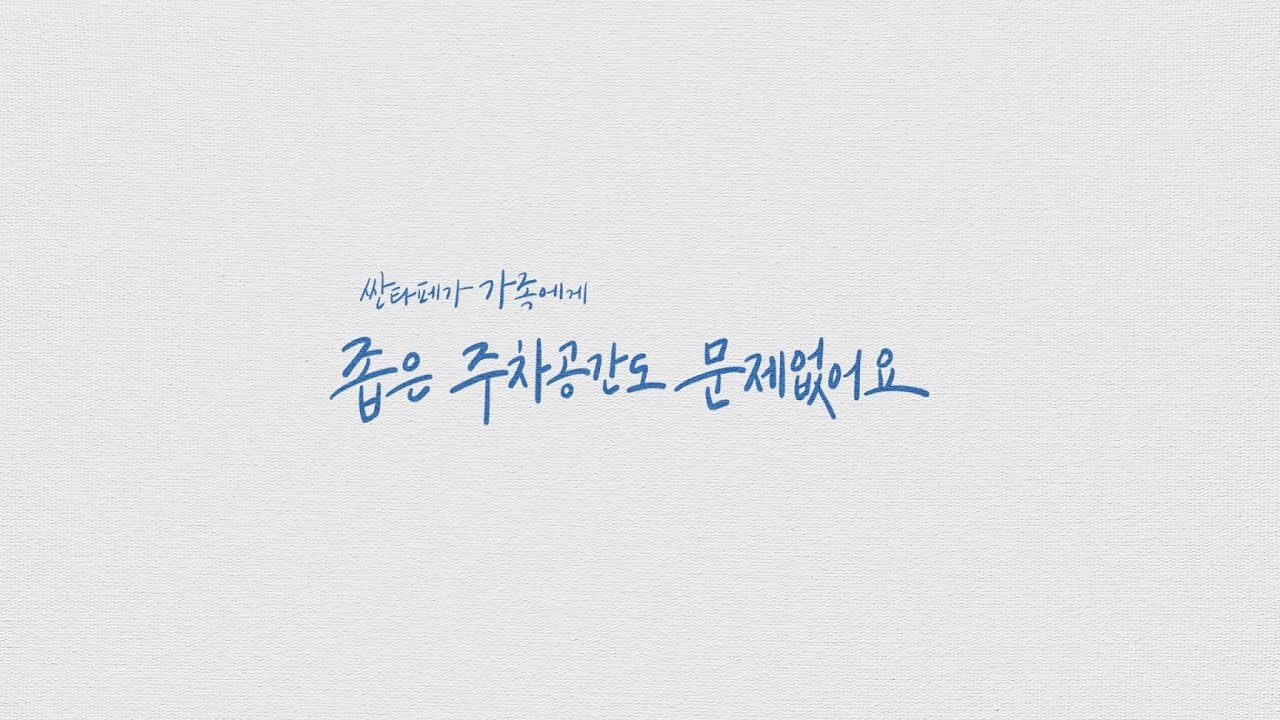 싼타페가 가족에게
좁은 주차공간도 문제없어요